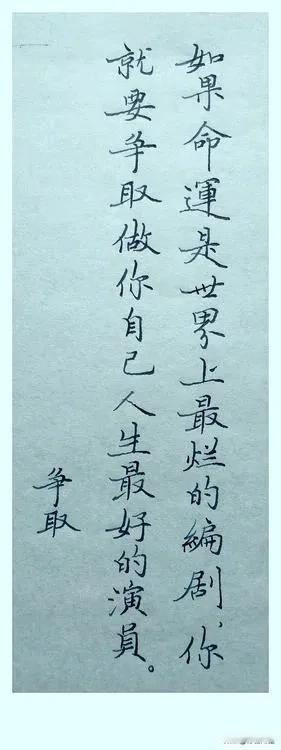 如果命運是世界上最烂的编剧、你
就要争取做你自己人生最好的演員。
争取